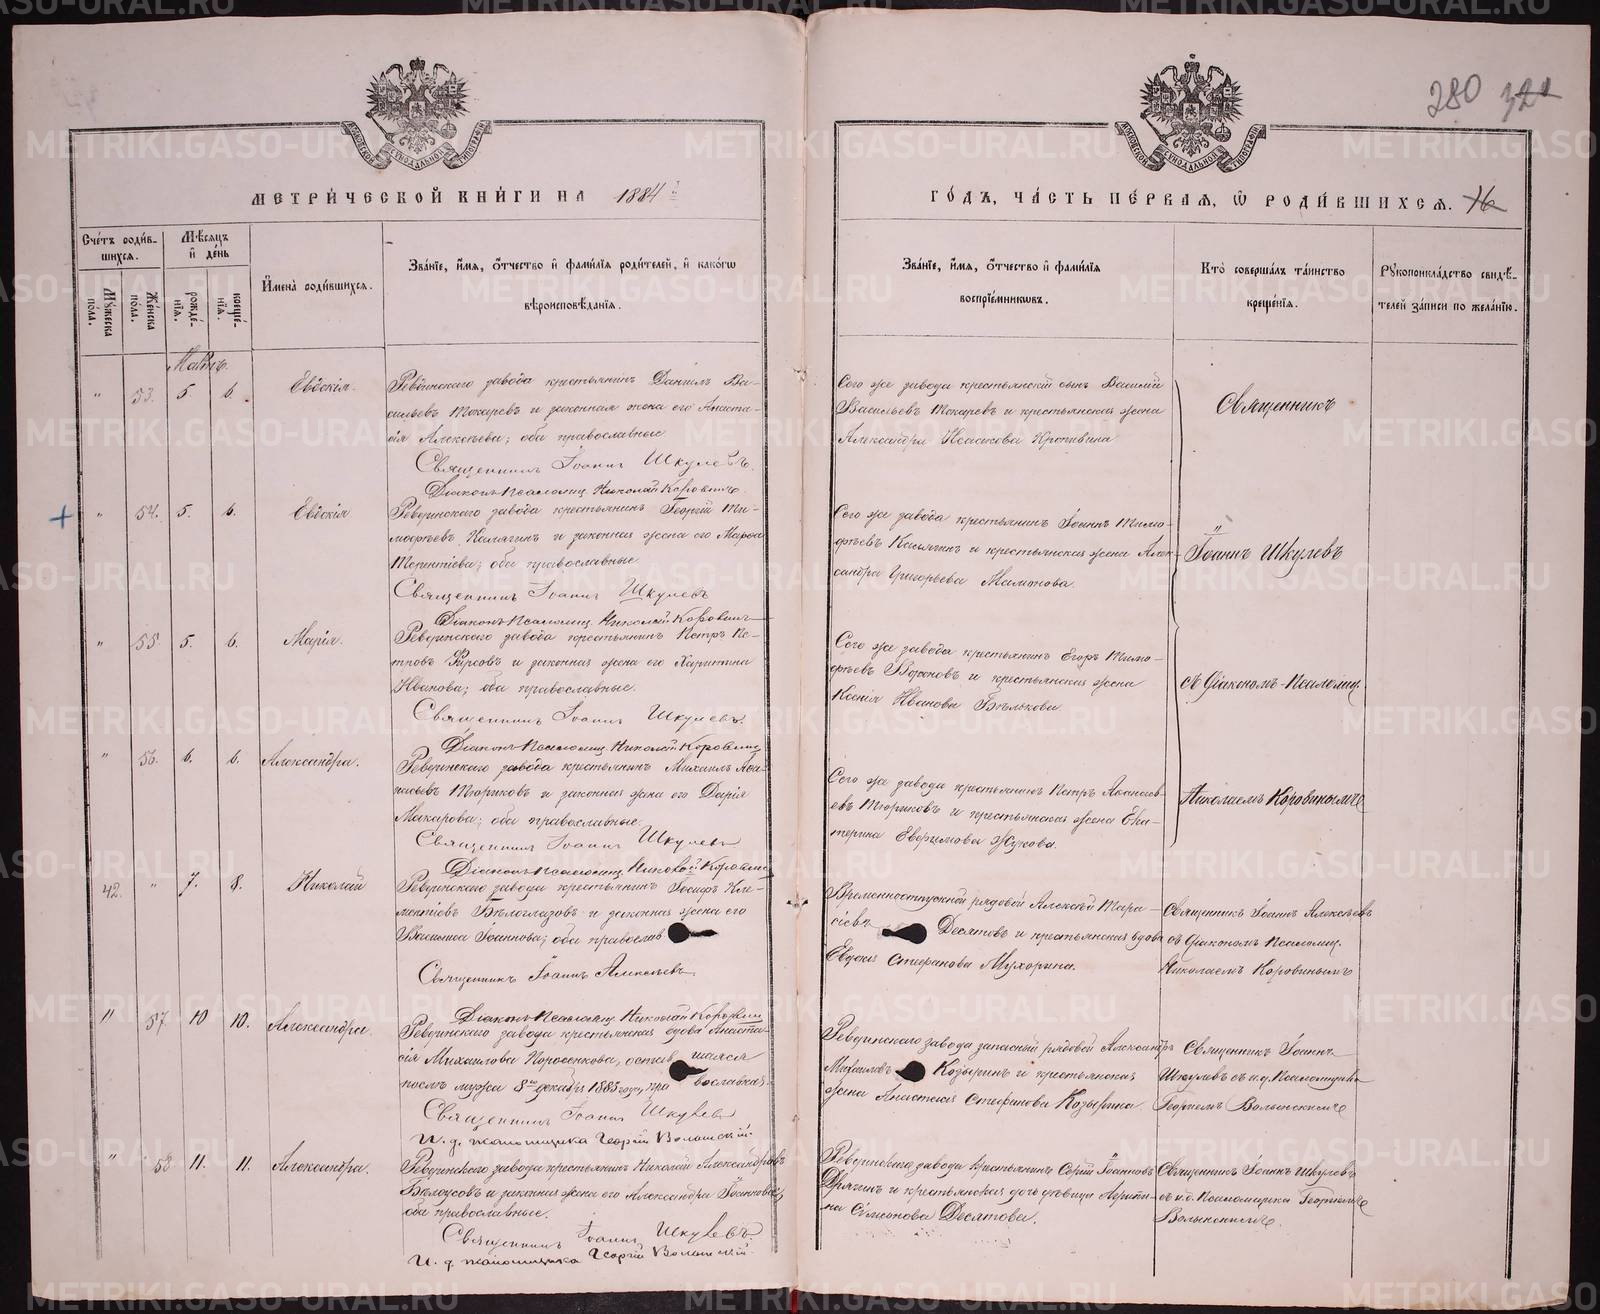 280 321
МЕТРИ́ЧЕСКОЙ КНИ́ГИ НА 1884 ГО́ДЪ, ЧА́СТЬ ПЕ́РВАѦ, Ѡ РОДИ́ВШИХСѦ. 76
МОСКОВСКОЙ СѴНОДАЛЬНОЙ ТИПОГРАФІИ
МОСКОВСКОЙ СѴНОДАЛЬНОЙ ТИПОГРАФІИ
Сче́тъ роди́в-
шихсѧ.
Мѣсѧцъ
и҆ де́нь
Мꙋ́жеска по́ла.
Же́нска по́ла.
рожде́-нїѧ.
креще́-нїѧ.
И҆мена̀ роди́вшихсѧ.
Зва́нїе, и҆́мѧ, ѻ҆́тчество и҆ фами́лїѧ роди́телей, и҆ како́гѡ
вѣроисповѣ́данїѧ.
Зва́нїе, и҆́мѧ, ѻ҆́тчество и҆ фами́лїѧ
воспрїе́мникѡвъ.
Кто̀ соверша́лъ та́инство
креще́нїѧ.
Рꙋкоприкла́дство свидѣ́-
телей за́писи по жела́нїю.
Мартъ
" 53. 5. 6. Евдокія.
Ревдинскаго завода крестьянинъ Даніилъ Ва-
сильевъ Токаревъ и законная жена его Анаста-
сія Алексѣева; оба православные
Священникъ Іоаннъ Шкулевъ.
Діаконъ-Псаломщ. Николай Коровинъ
Сего же завода крестьянскій сынъ Василій
Васильевъ Токаревъ и крестьянская жена
Александра Исаакова Кропивина
Священникъ
" 54. 5. 6. Евдокія
Ревдинскаго завода крестьянинъ Георгій Ти-
моѳѣевъ Калягинъ и законная жена его Марѳа
Терентіева; оба православные
Священникъ Іоаннъ Шкулевъ
Діаконъ-Псаломщ. Николай Коровинъ
Сего же завода крестьянинъ Іоаннъ Тимо-
ѳѣевъ Калягинъ и крестьянская жена Алек-
сандра Григорьева Мамонова.
"
Іоаннъ Шкулевъ
" 55. 5. 6. Марія.
Ревдинскаго завода крестьянинъ Петръ Пе-
тровъ Фирсовъ и законная жена его Харитина
Иванова; оба православные.
Священникъ Іоаннъ Шкулевъ.
Діаконъ-Псаломщ. Николай Коровинъ
Сего же завода крестьянинъ Егоръ Тимо-
ѳѣевъ Вороновъ и крестьянская жена
Ксенія Иванова Бѣлькова.
съ Діакономъ-Псаломщ.
" 56. 6. 6. Александра.
Ревдинскаго завода крестьянинъ Михаилъ Аѳа-
насьевъ Тюриковъ и законная жена его Дарія
Макарова; оба православные.
Священникъ Іоаннъ Шкулевъ
Діаконъ-Псаломщ. Николай Коровинъ
Сего же завода крестьянинъ Петръ Аѳанась-
евъ Тюриковъ и крестьянская жена Ека-
терина Евфимова Жукова.
Николаемъ Коровинымъ
42. " 7. 8. Николай
Ревдинскаго завода крестьянинъ Іосифъ Кле-
ментіевъ Бѣлоглазовъ и законная жена его
Васильева Іоаннова; оба православ
Священникъ Іоаннъ Алексѣевъ
Діаконъ-Псаломщ. Николай Коровинъ
Временноотпускной рядовой Алексѣй Тара-
сіевъ Десятовъ и крестьянская вдова
Евдокія Стефанова Мухорина.
Священникъ Іоаннъ Алексѣевъ
съ Діакономъ Псаломщ.
Николаемъ Коровинымъ
" 57. 10 10. Александра.
Ревдинскаго завода крестьянская вдова Анаста-
сія Михаилова Поросенкова, оставшаяся
послѣ мужа 8го декабря 1883 года, православная.
Священникъ Іоаннъ Шкулевъ
И. д. псаломщика Георгій Волынскій.
Ревдинскаго завода запасный рядовой Александръ
Михаиловъ Козыринъ и крестьянская
жена Анастасія Стефанова Козырина
Священникъ Іоаннъ
Шкулевъ съ и. д. Псаломщика
Георгіемъ Волынскимъ
" 58 11. 11. Александра.
Ревдинскаго завода крестьянинъ Николай Александровъ
Бѣлоусовъ и законная жена его Александра Іоаннова;
оба православные.
Священникъ Іоаннъ Шкулевъ.
И. д. псаломщика Георгій Волынскій.
Ревдинскаго завода крестьянинъ Сергій Іоанновъ
Дрягинъ и крестьянская дочь дѣвица Агрипи-
на Симеонова Десятова.
Священникъ Іоаннъ Шкулевъ
съ и. д. Псаломщика Георгіемъ
Волынскимъ.
METRIKI.GASO-URAL.RU